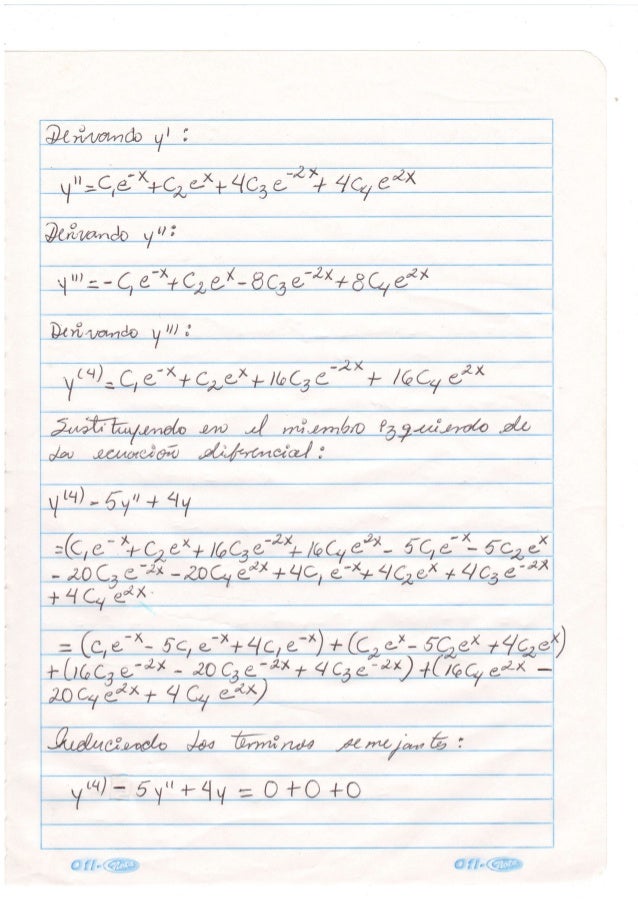 Derivando y' :
y'' = C₁e⁻ˣ + C₂eˣ + 4C₃e⁻²ˣ + 4C₄e²ˣ
Derivando y'' :
y''' = - C₁e⁻ˣ + C₂eˣ - 8C₃e⁻²ˣ + 8C₄e²ˣ
Derivando y''' :
y⁽⁴⁾ = C₁e⁻ˣ + C₂eˣ + 16C₃e⁻²ˣ + 16C₄e²ˣ
Sustituyendo en el miembro izquierdo de
la ecuación diferencial :
y⁽⁴⁾ - 5y'' + 4y
= (C₁e⁻ˣ + C₂eˣ + 16C₃e⁻²ˣ + 16C₄e²ˣ - 5C₁e⁻ˣ - 5C₂eˣ
- 20C₃e⁻²ˣ - 20C₄e²ˣ + 4C₁e⁻ˣ + 4C₂eˣ + 4C₃e⁻²ˣ
+ 4C₄e²ˣ.
= (C₁e⁻ˣ - 5C₁e⁻ˣ + 4C₁e⁻ˣ) + (C₂eˣ - 5C₂eˣ + 4C₂eˣ)
+ (16C₃e⁻²ˣ - 20C₃e⁻²ˣ + 4C₃e⁻²ˣ) + (16C₄e²ˣ -
20C₄e²ˣ + 4C₄e²ˣ)
Reduciendo los terminos semejantes :
y⁽⁴⁾ - 5y'' + 4y = 0 + 0 + 0